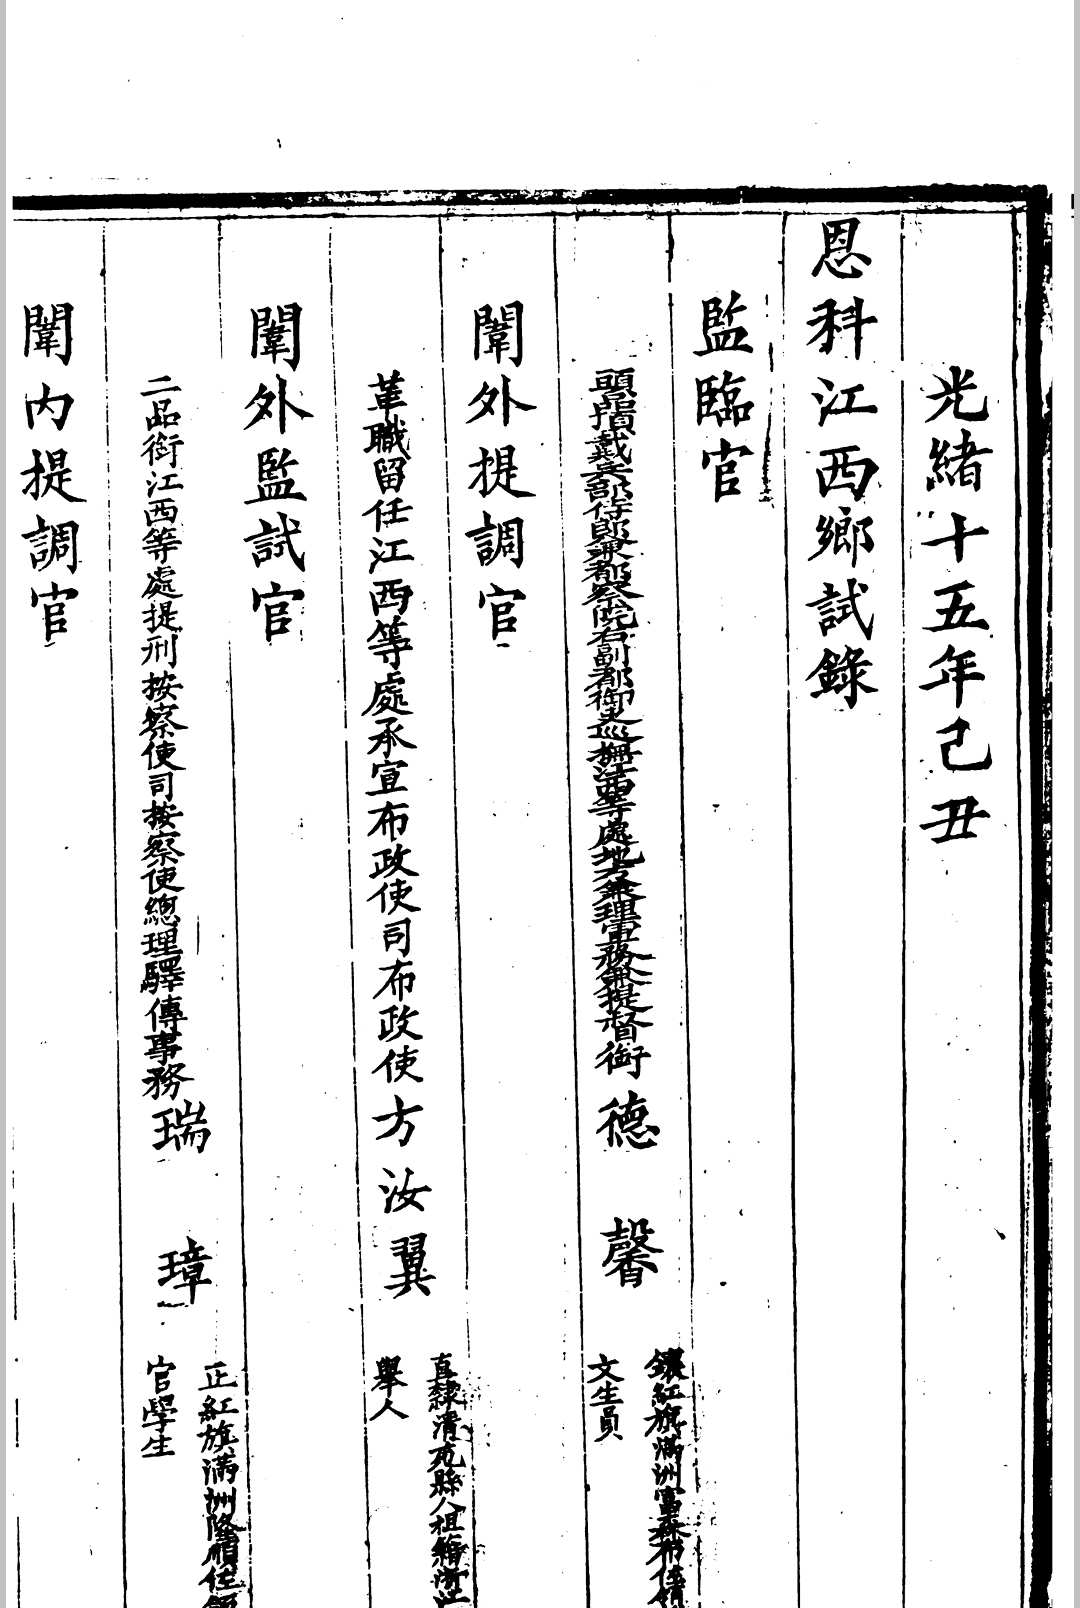 光緒十五年己丑
恩科江西鄉試錄
監臨官
頭品頂戴兵部侍郎兼都察院右副都御史巡撫江西等處地方兼理軍務兼提督銜德馨
鑲紅旗滿洲富森布佐領
文生員
闈外提調官
革職留任江西等處承宣布政使司布政使方汝翼
直隸清苑縣人祖籍浙江
舉人
闈外監試官
二品銜江西等處提刑按察使司按察使總理驛傳事務瑞璋
正紅旗滿洲隆順佐領
官學生
闈內提調官